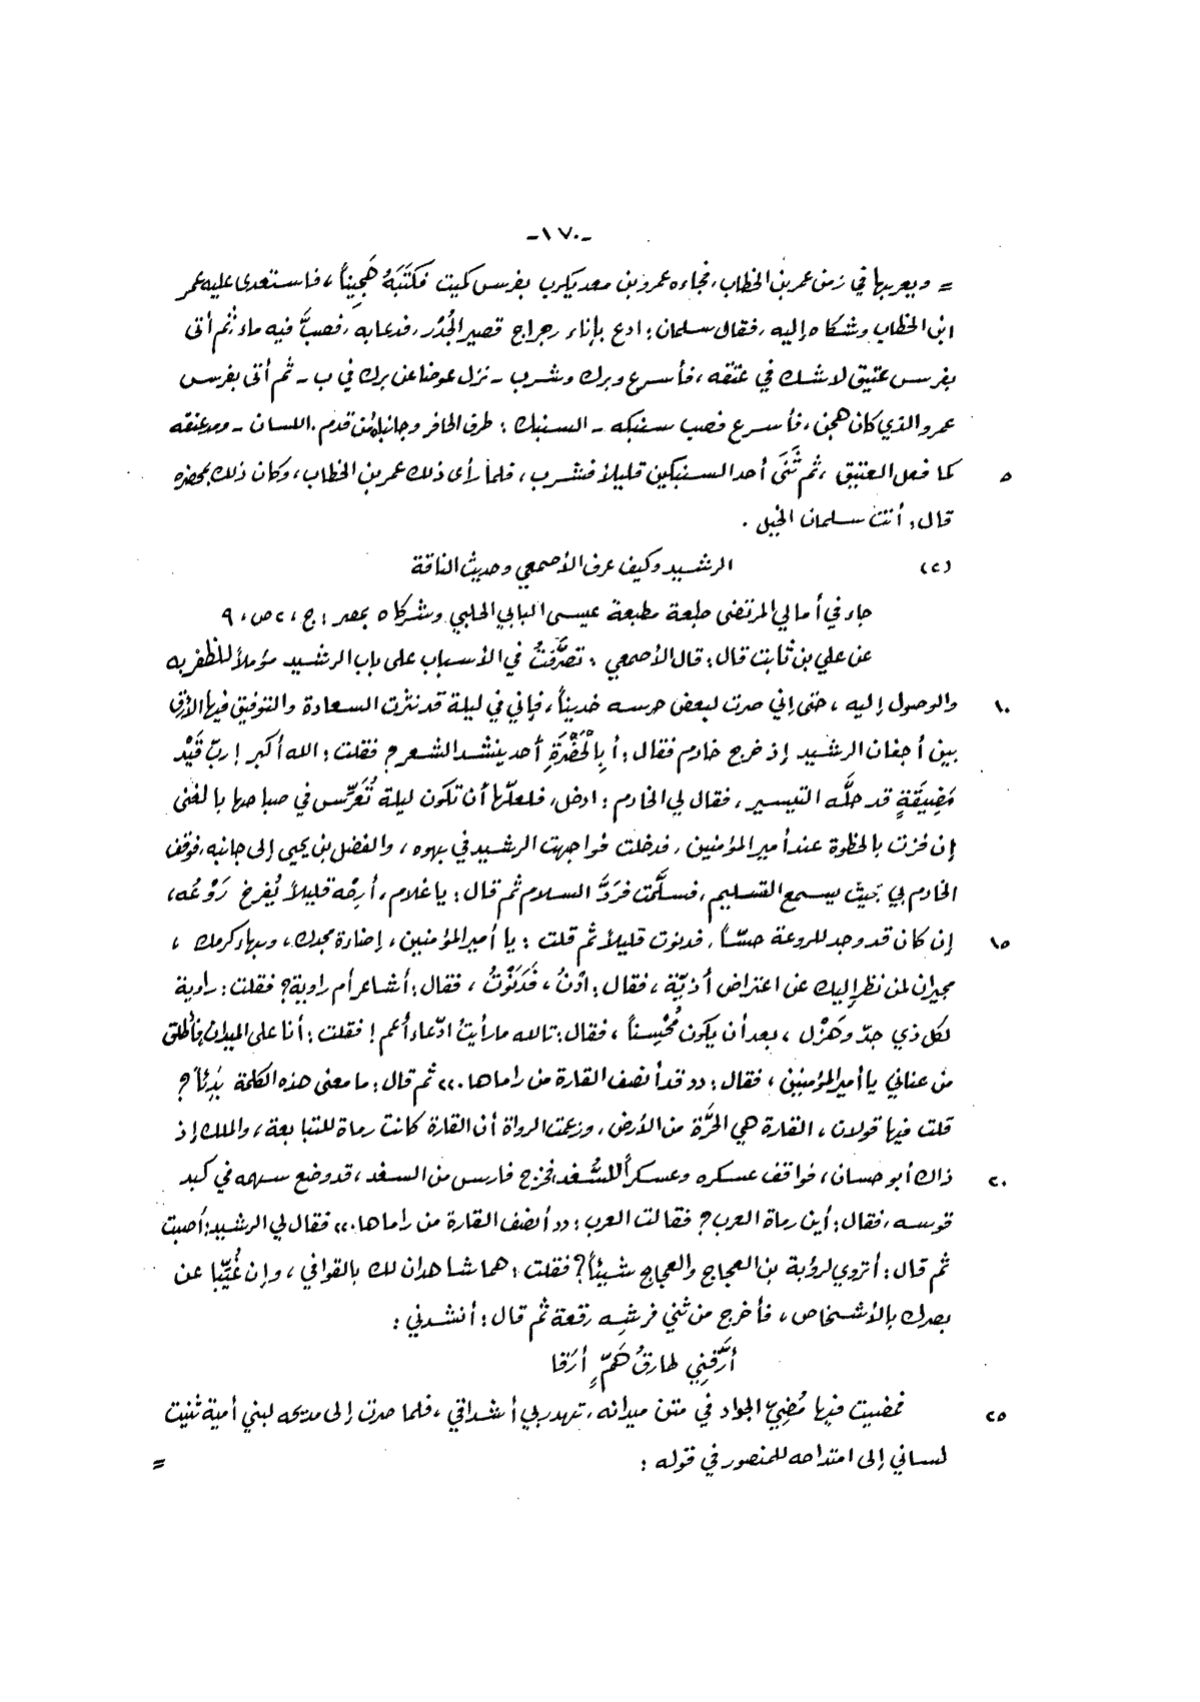 -١٧٠-
= ويعربها في زمن عمر بن الخطاب، فجاءه عمرو بن معد يكرب بفرس كميت فكَتَبَهُ هَجِيناً، فاستعدى عليه عمر
ابن الخطاب وشكاه إليه، فقال سلمان: ادع بإناء رجراج قصير الجُدُر، فدعا به، فصبَّ فيه ماء ثُم أتى
بفرس عتيق لا شك في عتقه، فأسرع وبرك وشرب - نزل عوضا عن برك في ب - ثم أتى بفرس
عمرو الذي كان هجن، فأسرع فصب سنبكه - السنبك: طرف الحافر وجانباه من قدم. اللسان - ومد عنقه
٥ كما فعل العتيق، ثم ثَنَّى أحد السنبكين قليلاً فشرب، فلما رأى ذلك عمر بن الخطاب، وكان ذلك بمحضره
قال: أنت سلمان الخيل.
(٢) الرشيد وكيف عرف الأصمعي وحديث الناقة
جاء في أمالي المرتضى طبعة مطبعة عيسى البابي الحلبي وشركاه بمصر: ج، ٢ ص، ٩
عن علي بن ثابت قال: قال الأصمعي: تصرَّفتُ في الأسباب على باب الرشيد مؤملاً للظفر به
١٠ والوصول إليه، حتى إني صرت لبعض حرسه خديناً، فإني في ليلة قد نثرت السعادة والتوفيق فيها الأرق
بين أجفان الرشيد إذ خرج خادم فقال: أبِالحَضْرَةِ أحد ينشد الشعر؟ فقلت: الله أكبر! ربّ قَيْد
مَضِيقَةٍ قد حلَّه التيسير، فقال لي الخادم: ادخل، فلعلّها أن تكون ليلة تُعَرِّس في صباحها بالغنى
إن فزت بالحظوة عند أمير المؤمنين، فدخلت فواجهت الرشيد في بهوه، والفضل بن يحيى إلى جانبه، فوقف
الخادم بي بحيث يسمع التسليم، فسلَّمت فرَدَّ السلام ثم قال: يا غلام، أرِحْه قليلاً يُفرخ رَوْعُه،
١٥ إن كان قد وجد للروعة حسّاً، فدنوت قليلاً ثم قلت: يا أمير المؤمنين، إضاءة مجدك، وبهاء كرمك،
مجيران لمن نظر إليك عن اعتراض أذيّة، فقال: ادْنُ، فَدَنَوْتُ، فقال: أشاعر أم راوية؟ فقلت: راوية
لكل ذي جدّ وهَزْل، بعد أن يكون مُحْسِناً، فقال: تالله ما رأيتُ ادّعاء أعم! فقلت: أنا على الميدان، فأطلق
من عناني يا أمير المؤمنين، فقال: «قد أنصف القارة من راماها.» ثم قال: ما معنى هذه الكلمة بَدِيّاً؟
قلت فيها قولان، القارة هي الحَرَّة من الأرض، وزعمت الرواة أن القارة كانت رماة للتبابعة، والملك إذ
٢٠ ذاك أبو حسان، فواقف عسكره وعسكراً للسُّغد، فخرج فارس من السغد، قد وضع سهمه في كبد
قوسه، فقال: أين رماة العرب؟ فقالت العرب: «أنصف القارة من راماها.» فقال لي الرشيد: أصبت
ثم قال: أتروي لرؤبة بن العجاج والعجاج شيئاً؟ فقلت: هما شاهدان لك بالقوافي، وإن غُيِّبا عن
بصرك بالأشخاص، فأخرج من ثني فرشِه رقعة ثم قال: أنشدني:
أرَّقَنِي طارقُ هَمٍّ أرَقا
٢٥ فمضيت فيها مُضِيّ الجواد في متن ميدانه، تهدر بي أشداقي، فلما صرت إلى مديحه لبني أمية ثنيت
لساني إلى امتداحه للمنصور في قوله: =